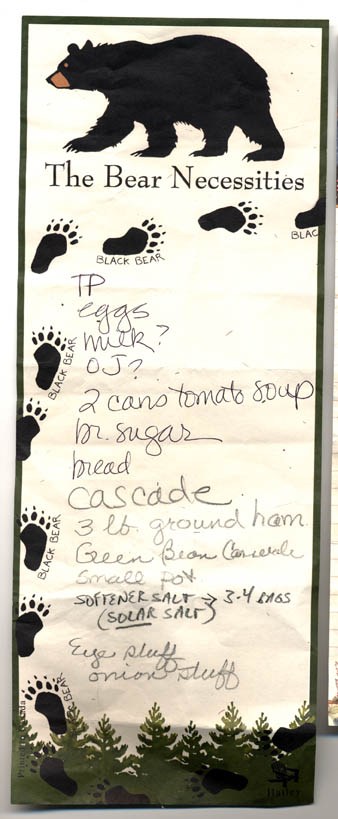 The Bear Necessities
BLACK BEAR
BLAC
TP
eggs
milk?
OJ?
BLACK BEAR
2 cans tomato soup
br. sugar
bread
Cascade
3 lb. ground ham
BLACK BEAR
Green Bean Casserole
small pot
SOFTENER SALT → 3-4 BAGS
(SOLAR SALT)
Eye stuff
onion stuff
BEAR
Hatley